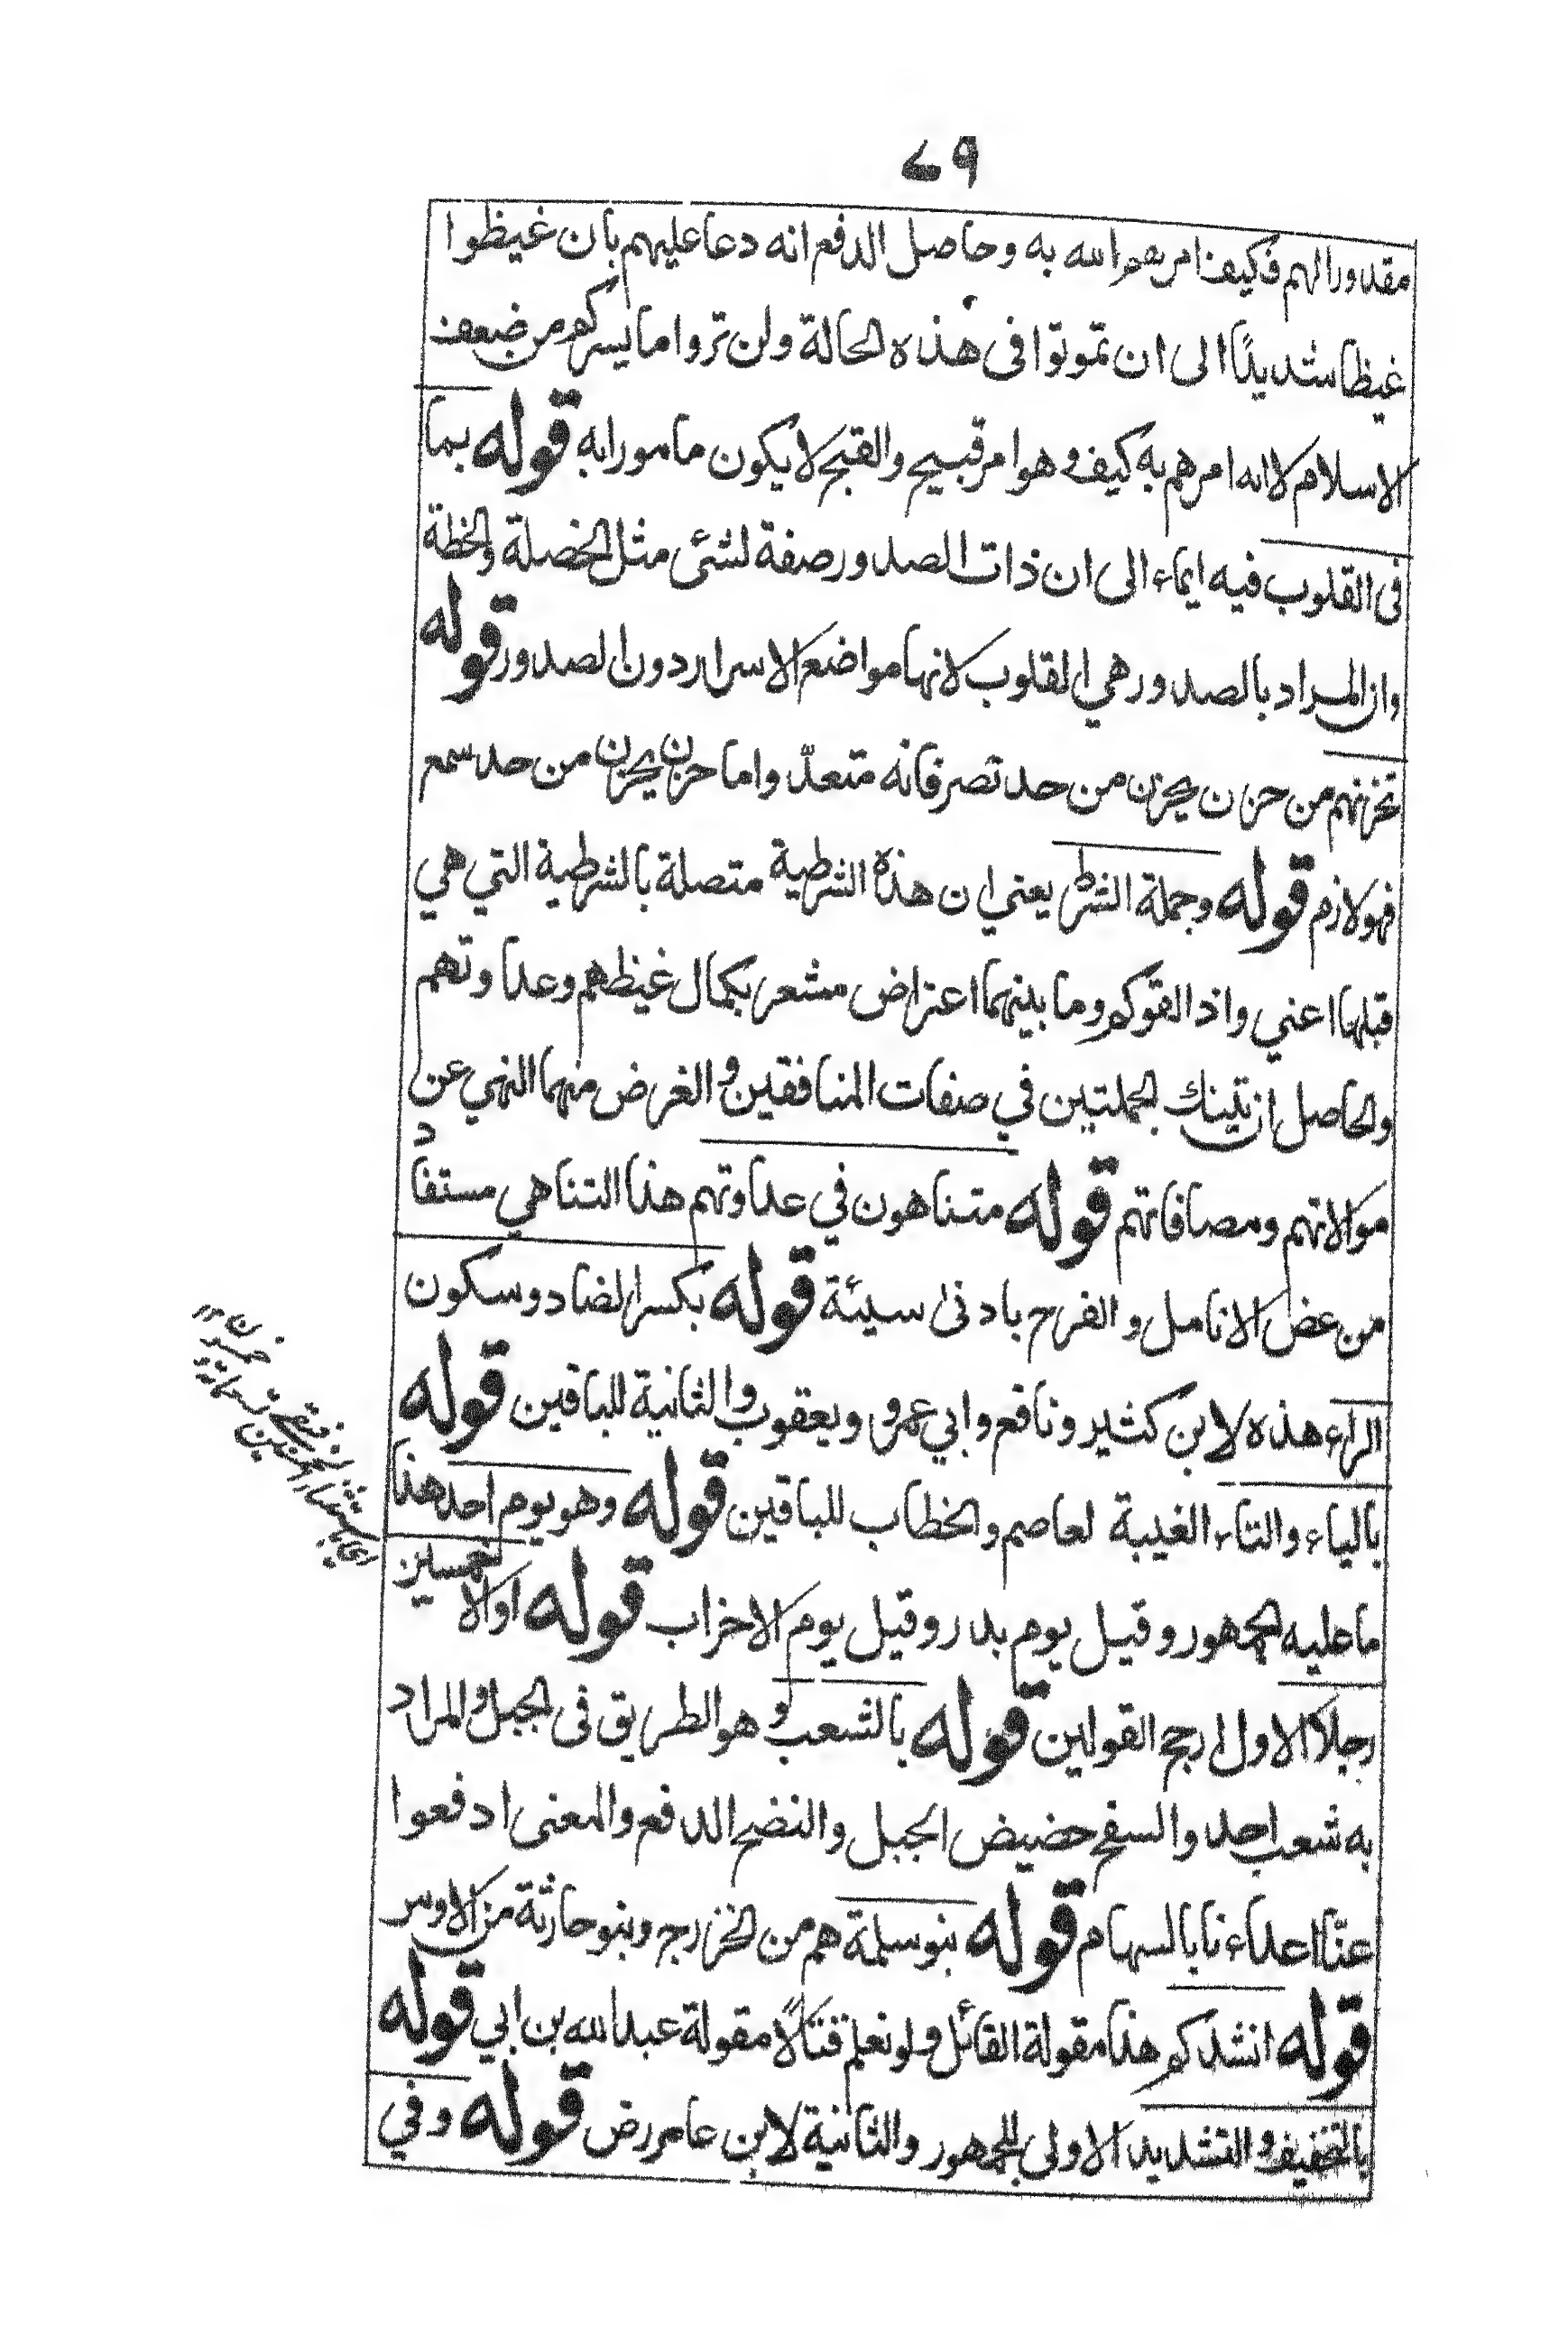 ٧٩
مقدورا لهم فكيف امرهم الله به وحاصل الدفع انه دعا عليهم بان غيظوا
غيظا شديدًا الى ان تموتوا فى هذه الحالة ولن تروا ما يسركم من ضعف
الاسلام لا انه امرهم به كيف وهو امر قبيح والقبح لا يكون مامورا به قوله بما
فى القلوب فيه ايماء الى ان ذات الصدور صفة لشئ مثل الخصلة والخطة
وان المراد بالصدور هي القلوب لانها مواضع الاسرار دون الصدور قوله
تحزنهم من حزن يحزن من حد تصر فانه متعدّ واما حزن يحزن من حد سمع
فهو لازم قوله وجملة الشرط يعني ان هذه الشرطية متصلة بالشرطية التي هي
قبلها اعني واذا لقوكم وما بينهما اعتراض مشعر بكمال غيظهم وعداوتهم
والحاصل ان تينك الجملتين في صفات المنافقين والغرض منهما النهي عن
موالاتهم ومصافاتهم قوله متناهون في عداوتهم هذا التناهي مستفاد
من عض الانامل والفرح بادنى سيئة قوله بكسر الضاد وسكون
الراء هذه لابن كثير ونافع وابي عمرو ويعقوب والثانية للباقين قوله
بالياء والتاء الغيبة لعاصم والخطاب للباقين قوله وهو يوم احد هذا
ما عليه الجمهور وقيل يوم بدر وقيل يوم الاحزاب قوله او الا خمسين
رجلاً الاول ارجح القولين قوله بالشعب وهو الطريق فى الجبل والمراد
به شعب احد والسفح حضيض الجبل والنضح الدفع والمعنى ادفعوا
عنّا اعداء نا بالسهام قوله بنو سلمة هم من الخزرج وبنو حارثة من الاوس
قوله انشدكم هذا مقولة القائل ولو نعلم قتالاً مقولة عبد الله بن ابي قوله
بالتخفيف والتشديد الاولى للجمهور والثانية لابن عامر رض قوله وفي